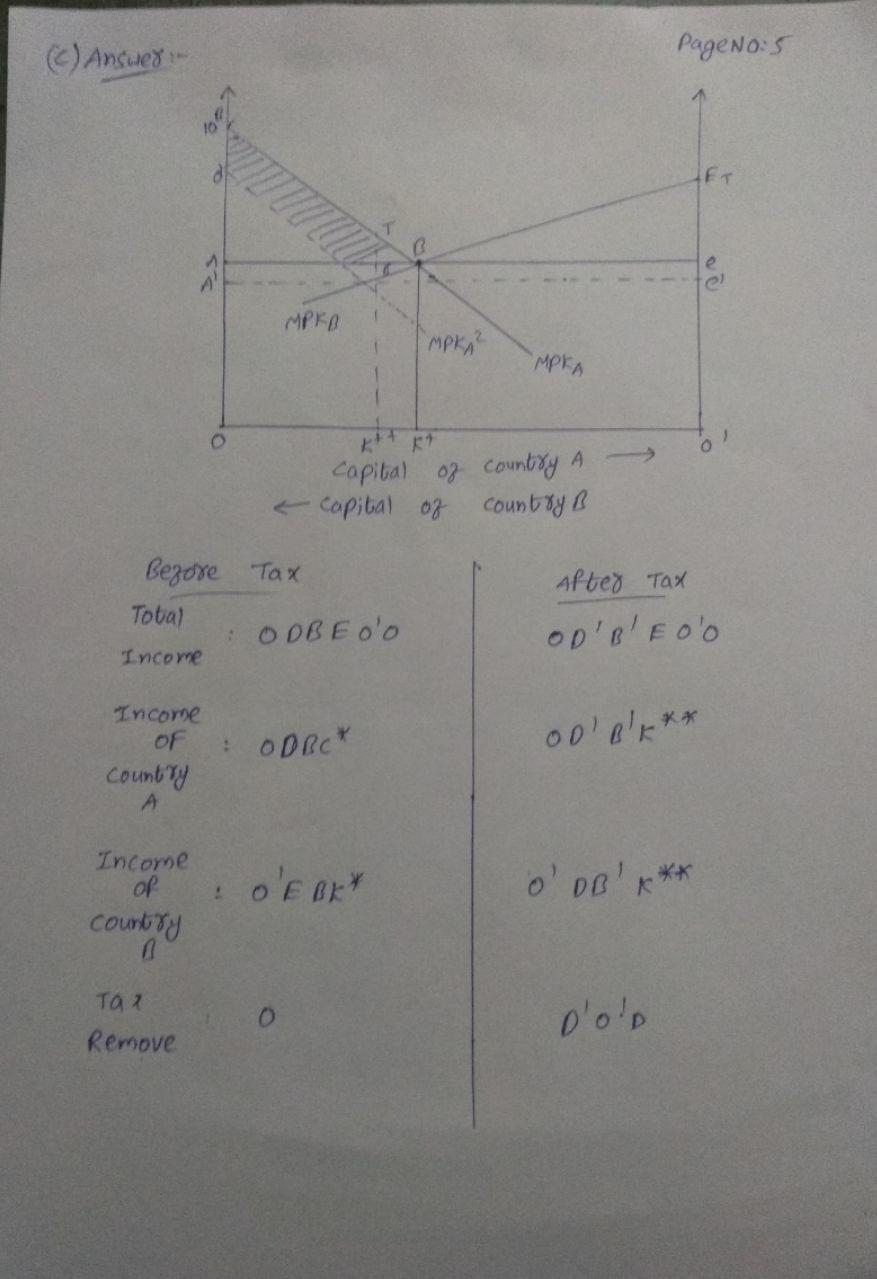 PageNO: 5
(C) Answer :-
10
d
T
B
E T
A
e
A'
c'
MPKB
MPKA²
MPKA
O
K++
K+
O'
Capital of Country A →
← Capital of Country B
Before Tax
After Tax
Total
Income : ODBE O'O
OD'B' E O'O
Income
OF
Country
A : ODBC*
OD' B'K**
Income
OF
Country
B : O'E BK*
O' DB' K**
Tax
Remove : O
D'O'D